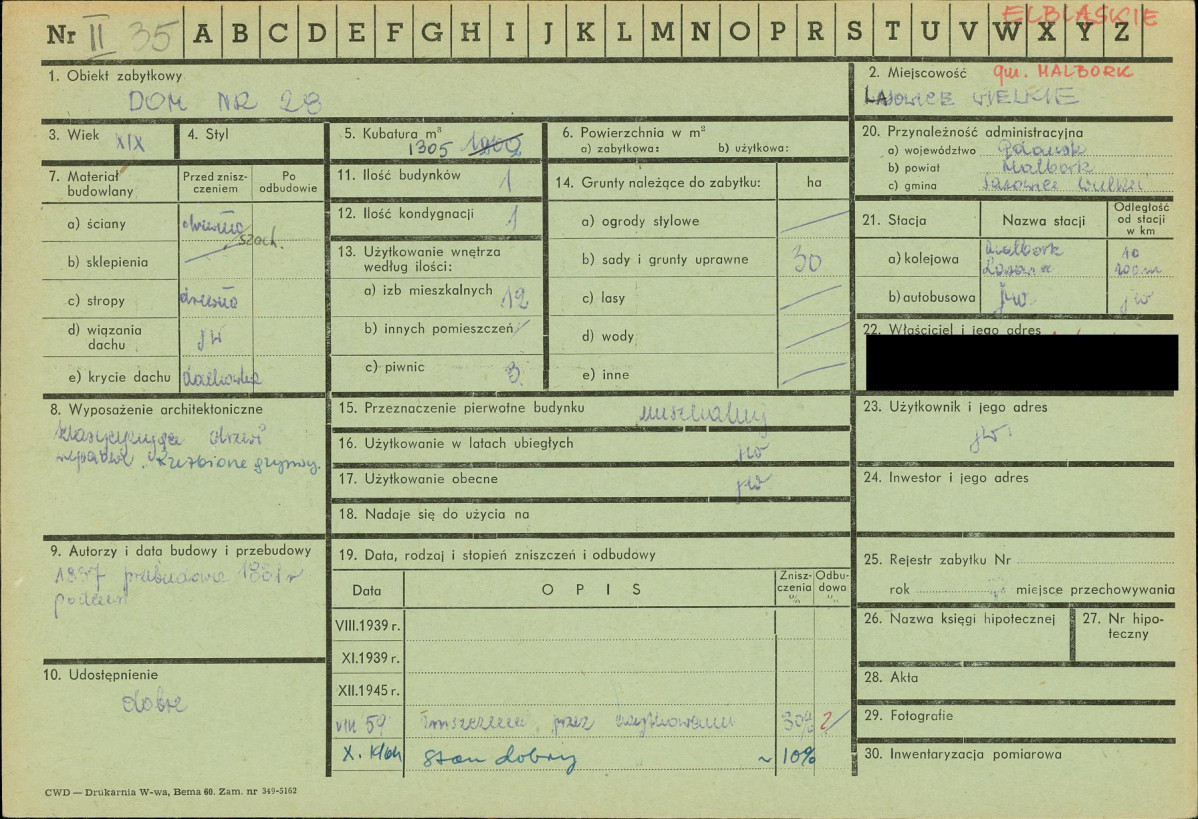 ELBLĄSKIE
Nr II 35 A B C D E F G H I J K L M N O P R S T U V W X Y Z
1. Obiekt zabytkowy
DOM NR 28
2. Miejscowość gm. MALBORK
LASOWICE WIELKIE
3. Wiek XIX
4. Styl
5. Kubatura m³
1305 1200
6. Powierzchnia w m²
a) zabytkowa: b) użytkowa:
20. Przynależność administracyjna
a) województwo Gdańsk
b) powiat Malbork
c) gmina Lasowice Wielkie
7. Materiał budowlany
Przed zniszczeniem
Po odbudowie
a) ściany drewno
szach.
b) sklepienia
c) stropy drewno
d) wiązania dachu jw
e) krycie dachu dachówka
11. Ilość budynków 1
12. Ilość kondygnacji 1
13. Użytkowanie wnętrza według ilości:
a) izb mieszkalnych 12
b) innych pomieszczeń
c) piwnic 3
14. Grunty należące do zabytku: ha
a) ogrody stylowe
b) sady i grunty uprawne 30
c) lasy
d) wody
e) inne
21. Stacja Nazwa stacji Odległość od stacji w km
a) kolejowa Malbork 10
b) autobusowa jw jw
22. Właściciel i jego adres
8. Wyposażenie architektoniczne
klasycyzujące drzwi
Rzeźbione gzymsy.
15. Przeznaczenie pierwotne budynku mieszkalny
16. Użytkowanie w latach ubiegłych jw
17. Użytkowanie obecne jw
18. Nadaje się do użycia na
23. Użytkownik i jego adres
jw.
24. Inwestor i jego adres
9. Autorzy i data budowy i przebudowy
przebudowa 1881 r
podcień
19. Data, rodzaj i stopień zniszczeń i odbudowy
Data OPIS Zniszczenia % Odbudowa %
VIII.1939 r.
XI.1939 r.
XII.1945 r.
VIII 59 zniszczenia przez użytkowanie 30% ?
X. stan dobry ~ 10%
25. Rejestr zabytku Nr
rok miejsce przechowywania
26. Nazwa księgi hipotecznej
27. Nr hipoteczny
10. Udostępnienie
dobre
28. Akta
29. Fotografie
30. Inwentaryzacja pomiarowa
CWD — Drukarnia W-wa, Bema 60. Zam. nr 349-5162